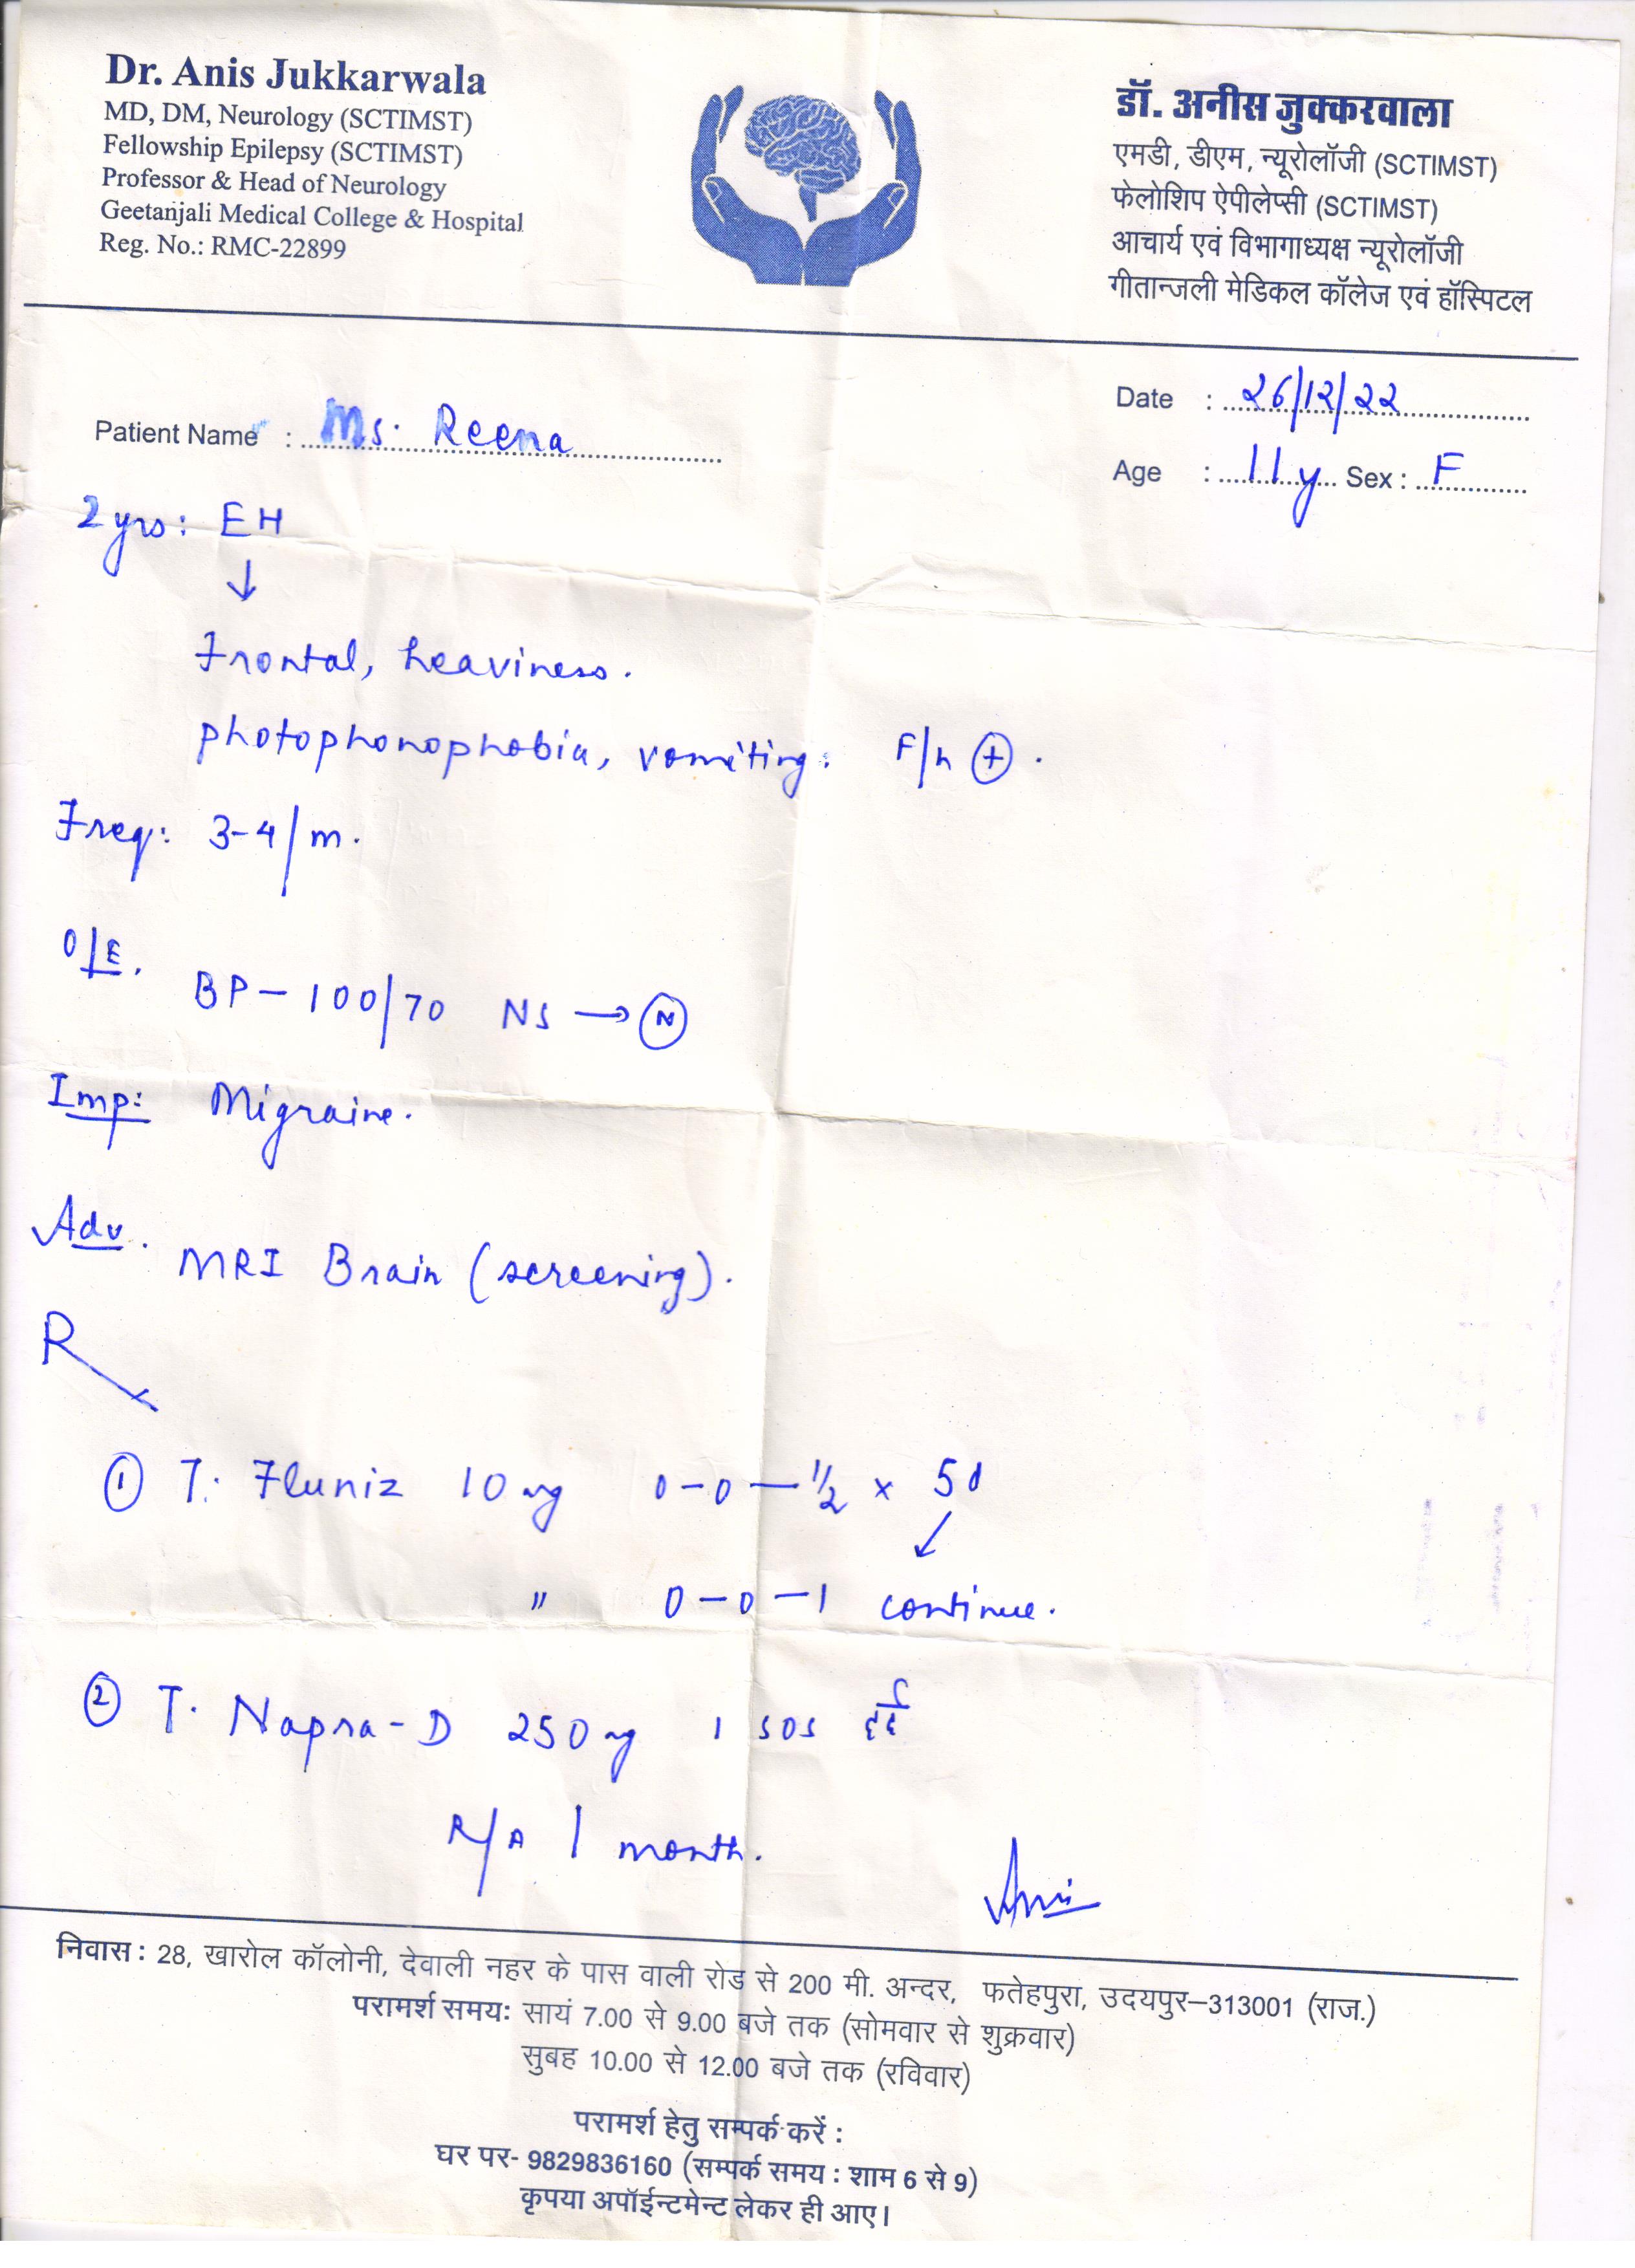 Dr. Anis Jukkarwala
MD, DM, Neurology (SCTIMST)
Fellowship Epilepsy (SCTIMST)
Professor & Head of Neurology
Geetanjali Medical College & Hospital
Reg. No.: RMC-22899
डॉ. अनीस जुक्करवाला
एमडी, डीएम, न्यूरोलॉजी (SCTIMST)
फेलोशिप ऐपीलेप्सी (SCTIMST)
आचार्य एवं विभागाध्यक्ष न्यूरोलॉजी
गीतान्जली मेडिकल कॉलेज एवं हॉस्पिटल
Date : 26/12/22
Patient Name : Ms. Reena
Age : 11y Sex : F
2 yrs: EH
↓
Frontal, heaviness.
photophonophobia, vomiting. F/h ⊕.
Freq: 3-4/m.
O/E.
BP - 100/70 NS → Ⓝ
Imp: Migraine.
Adv.
MRI Brain (screening).
Rx
① T. Fluniz 10 mg 0-0-1/2 x 5d
↓
" 0-0-1 continue.
② T. Napra-D 250 mg 1 sos दर्द
R/A 1 month.
Anis
निवास : 28, खारोल कॉलोनी, देवाली नहर के पास वाली रोड से 200 मी. अन्दर, फतेहपुरा, उदयपुर–313001 (राज.)
परामर्श समय: सायं 7.00 से 9.00 बजे तक (सोमवार से शुक्रवार)
सुबह 10.00 से 12.00 बजे तक (रविवार)
परामर्श हेतु सम्पर्क करें :
घर पर- 9829836160 (सम्पर्क समय : शाम 6 से 9)
कृपया अपॉईन्टमेन्ट लेकर ही आए।